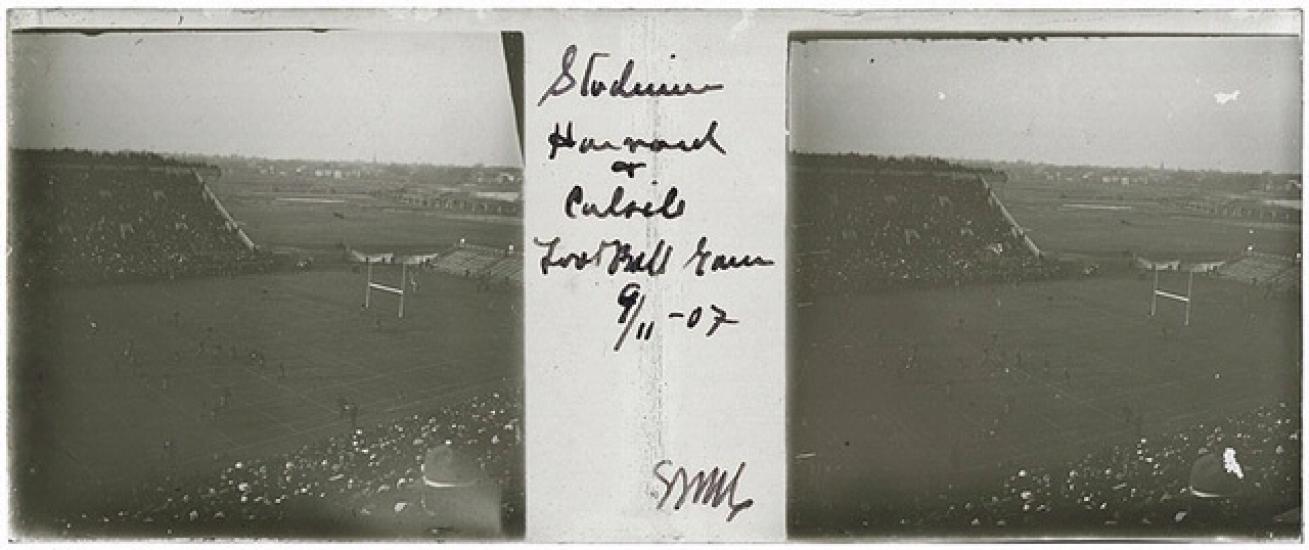 Stadium
Harvard
+
Carlisle
Foot Ball Game
9/11-07